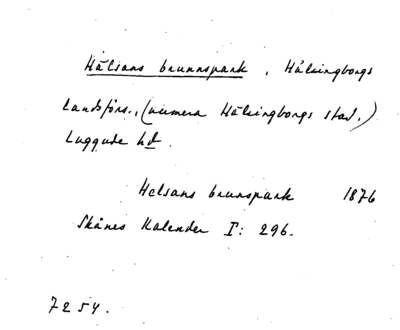 Hälsans brunnspark, Hälsingborgs
landsförs., (numera Hälsingborgs stad.)
Luggude hd.
Helsans brunspark 1876
Skånes Kalender I: 296.
7254.